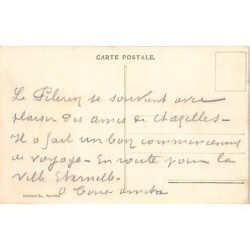 CARTE POSTALE.
Le Pélerin se souvient avec
plaisir des amies de Chazelles -
Il a fait un bon commencement
de voyage - En route pour la
ville Eternelle -
à Tours